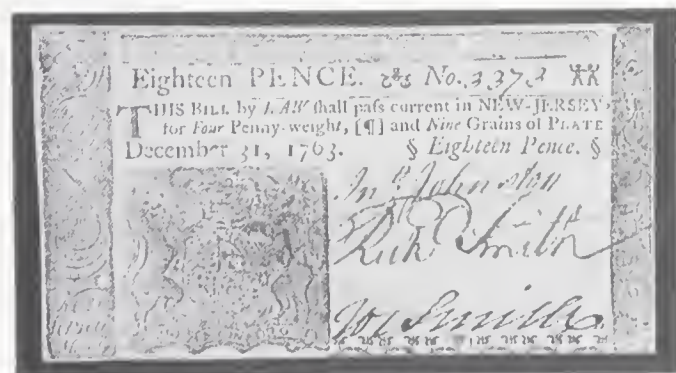 Eighteen PENCE. No. 3373
THIS BILL by LAW ſhall paſs current in NEW-JERSEY
for Four Penny-weight, [¶] and Nine Grains of PLATE
December 31, 1763. § Eighteen Pence. §
Jnº Johnston
Richd Smith
Jos Smith